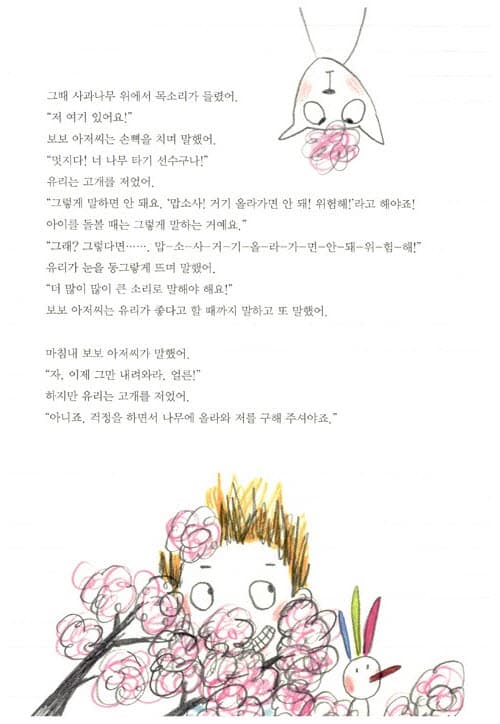 그때 사과나무 위에서 목소리가 들렸어.
“저 여기 있어요!”
보보 아저씨는 손뼉을 치며 말했어.
“멋지다! 너 나무 타기 선수구나!”
유리는 고개를 저었어.
“그렇게 말하면 안 돼요. ‘맙소사! 거기 올라가면 안 돼! 위험해!’라고 해야죠!
아이를 돌볼 때는 그렇게 말하는 거예요.”
“그래? 그렇다면……. 맙-소-사-거-기-올-라-가-면-안-돼-위-험-해!”
유리가 눈을 동그랗게 뜨며 말했어.
“더 많이 많이 큰 소리로 말해야 해요!”
보보 아저씨는 유리가 좋다고 할 때까지 말하고 또 말했어.
마침내 보보 아저씨가 말했어.
“자, 이제 그만 내려와라. 얼른!”
하지만 유리는 고개를 저었어.
“아니죠. 걱정을 하면서 나무에 올라와 저를 구해 주셔야죠.”